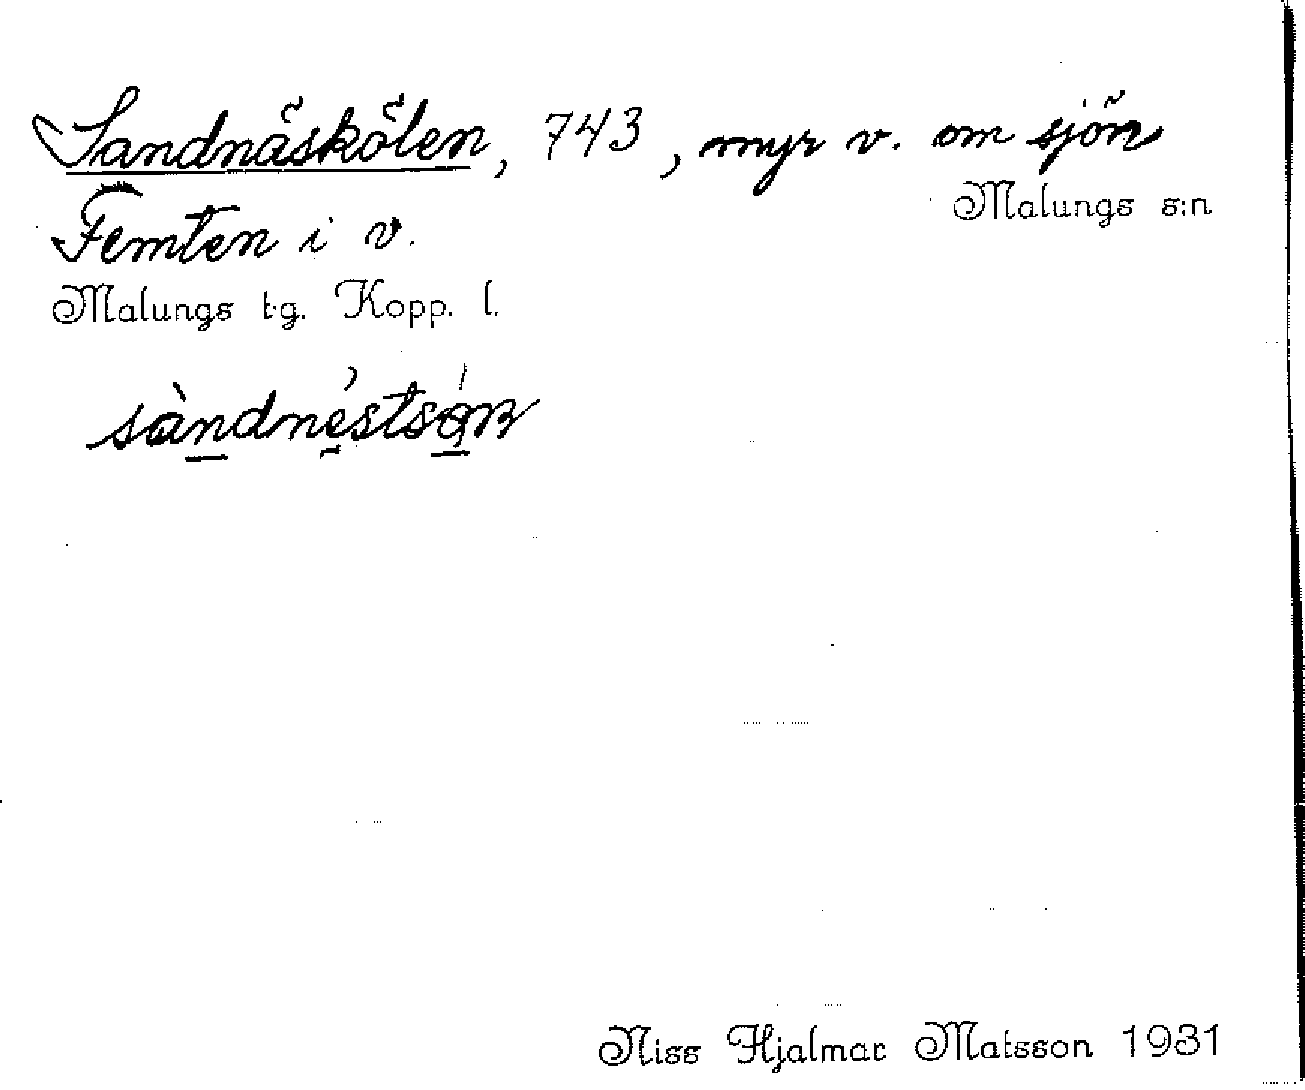 Sandnäskölen, 743, myr v. om sjön
Malungs s:n
Femten i v.
Malungs t.g. Kopp. l.
Niss Hjalmar Matsson 1931